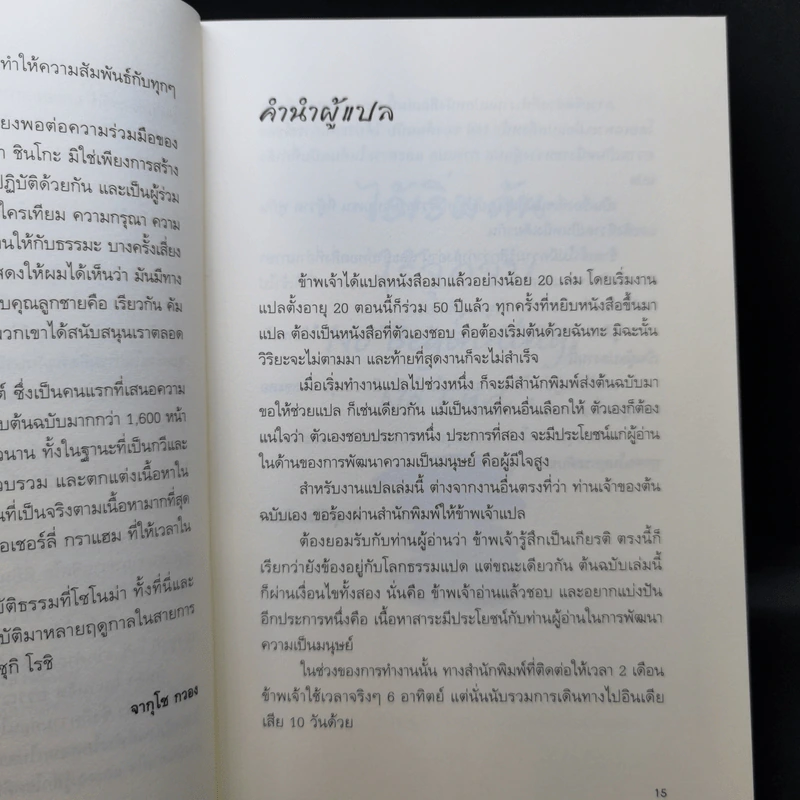 ทำให้ความสัมพันธ์กับทุกๆ
ยงพอต่อความร่วมมือของ
ชินโกะ มิใช่เพียงการสร้าง
ปฏิบัติด้วยกัน และเป็นผู้ร่วม
ใครเทียม ความกรุณา ความ
นให้กับธรรมะ บางครั้งเสี่ยง
สดงให้ผมได้เห็นว่า มันมีทาง
บคุณลูกชายคือ เรียวกัน คัม
พวกเขาได้สนับสนุนเราตลอด
ต์ ซึ่งเป็นคนแรกที่เสนอความ
บต้นฉบับมากกว่า 1,600 หน้า
วนาน ทั้งในฐานะที่เป็นกวีและ
วบรวม และตกแต่งเนื้อหาใน
นที่เป็นจริงตามเนื้อหามากที่สุด
อเชอร์ลี่ กราแฮม ที่ให้เวลาใน
บัติธรรมที่โซโนม่า ทั้งที่นี่และ
บัติมาหลายฤดูกาลในสายการ
ซุกิ โรชิ
จากุโช กวอง
คำนำผู้แปล
ข้าพเจ้าได้แปลหนังสือมาแล้วอย่างน้อย 20 เล่ม โดยเริ่มงาน
แปลตั้งอายุ 20 ตอนนี้ก็ร่วม 50 ปีแล้ว ทุกครั้งที่หยิบหนังสือขึ้นมา
แปล ต้องเป็นหนังสือที่ตัวเองชอบ คือต้องเริ่มต้นด้วยฉันทะ มิฉะนั้น
วิริยะจะไม่ตามมา และท้ายที่สุดงานก็จะไม่สำเร็จ
เมื่อเริ่มทำงานแปลไปช่วงหนึ่ง ก็จะมีสำนักพิมพ์ส่งต้นฉบับมา
ขอให้ช่วยแปล ก็เช่นเดียวกัน แม้เป็นงานที่คนอื่นเลือกให้ ตัวเองก็ต้อง
แน่ใจว่า ตัวเองชอบประการหนึ่ง ประการที่สอง จะมีประโยชน์แก่ผู้อ่าน
ในด้านของการพัฒนาความเป็นมนุษย์ คือผู้มีใจสูง
สำหรับงานแปลเล่มนี้ ต่างจากงานอื่นตรงที่ว่า ท่านเจ้าของต้น
ฉบับเอง ขอร้องผ่านสำนักพิมพ์ให้ข้าพเจ้าแปล
ต้องยอมรับกับท่านผู้อ่านว่า ข้าพเจ้ารู้สึกเป็นเกียรติ ตรงนี้ก็
เรียกว่ายังข้องอยู่กับโลกธรรมแปด แต่ขณะเดียวกัน ต้นฉบับเล่มนี้
ก็ผ่านเงื่อนไขทั้งสอง นั่นคือ ข้าพเจ้าอ่านแล้วชอบ และอยากแบ่งปัน
อีกประการหนึ่งคือ เนื้อหาสาระมีประโยชน์กับท่านผู้อ่านในการพัฒนา
ความเป็นมนุษย์
ในช่วงของการทำงานนั้น ทางสำนักพิมพ์ที่ติดต่อให้เวลา 2 เดือน
ข้าพเจ้าใช้เวลาจริงๆ 6 อาทิตย์ แต่นั่นนับรวมการเดินทางไปอินเดีย
เสีย 10 วันด้วย
15